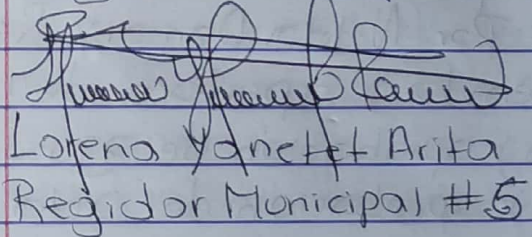 Lorena Yanetht Arita
Regidor Municipal #5